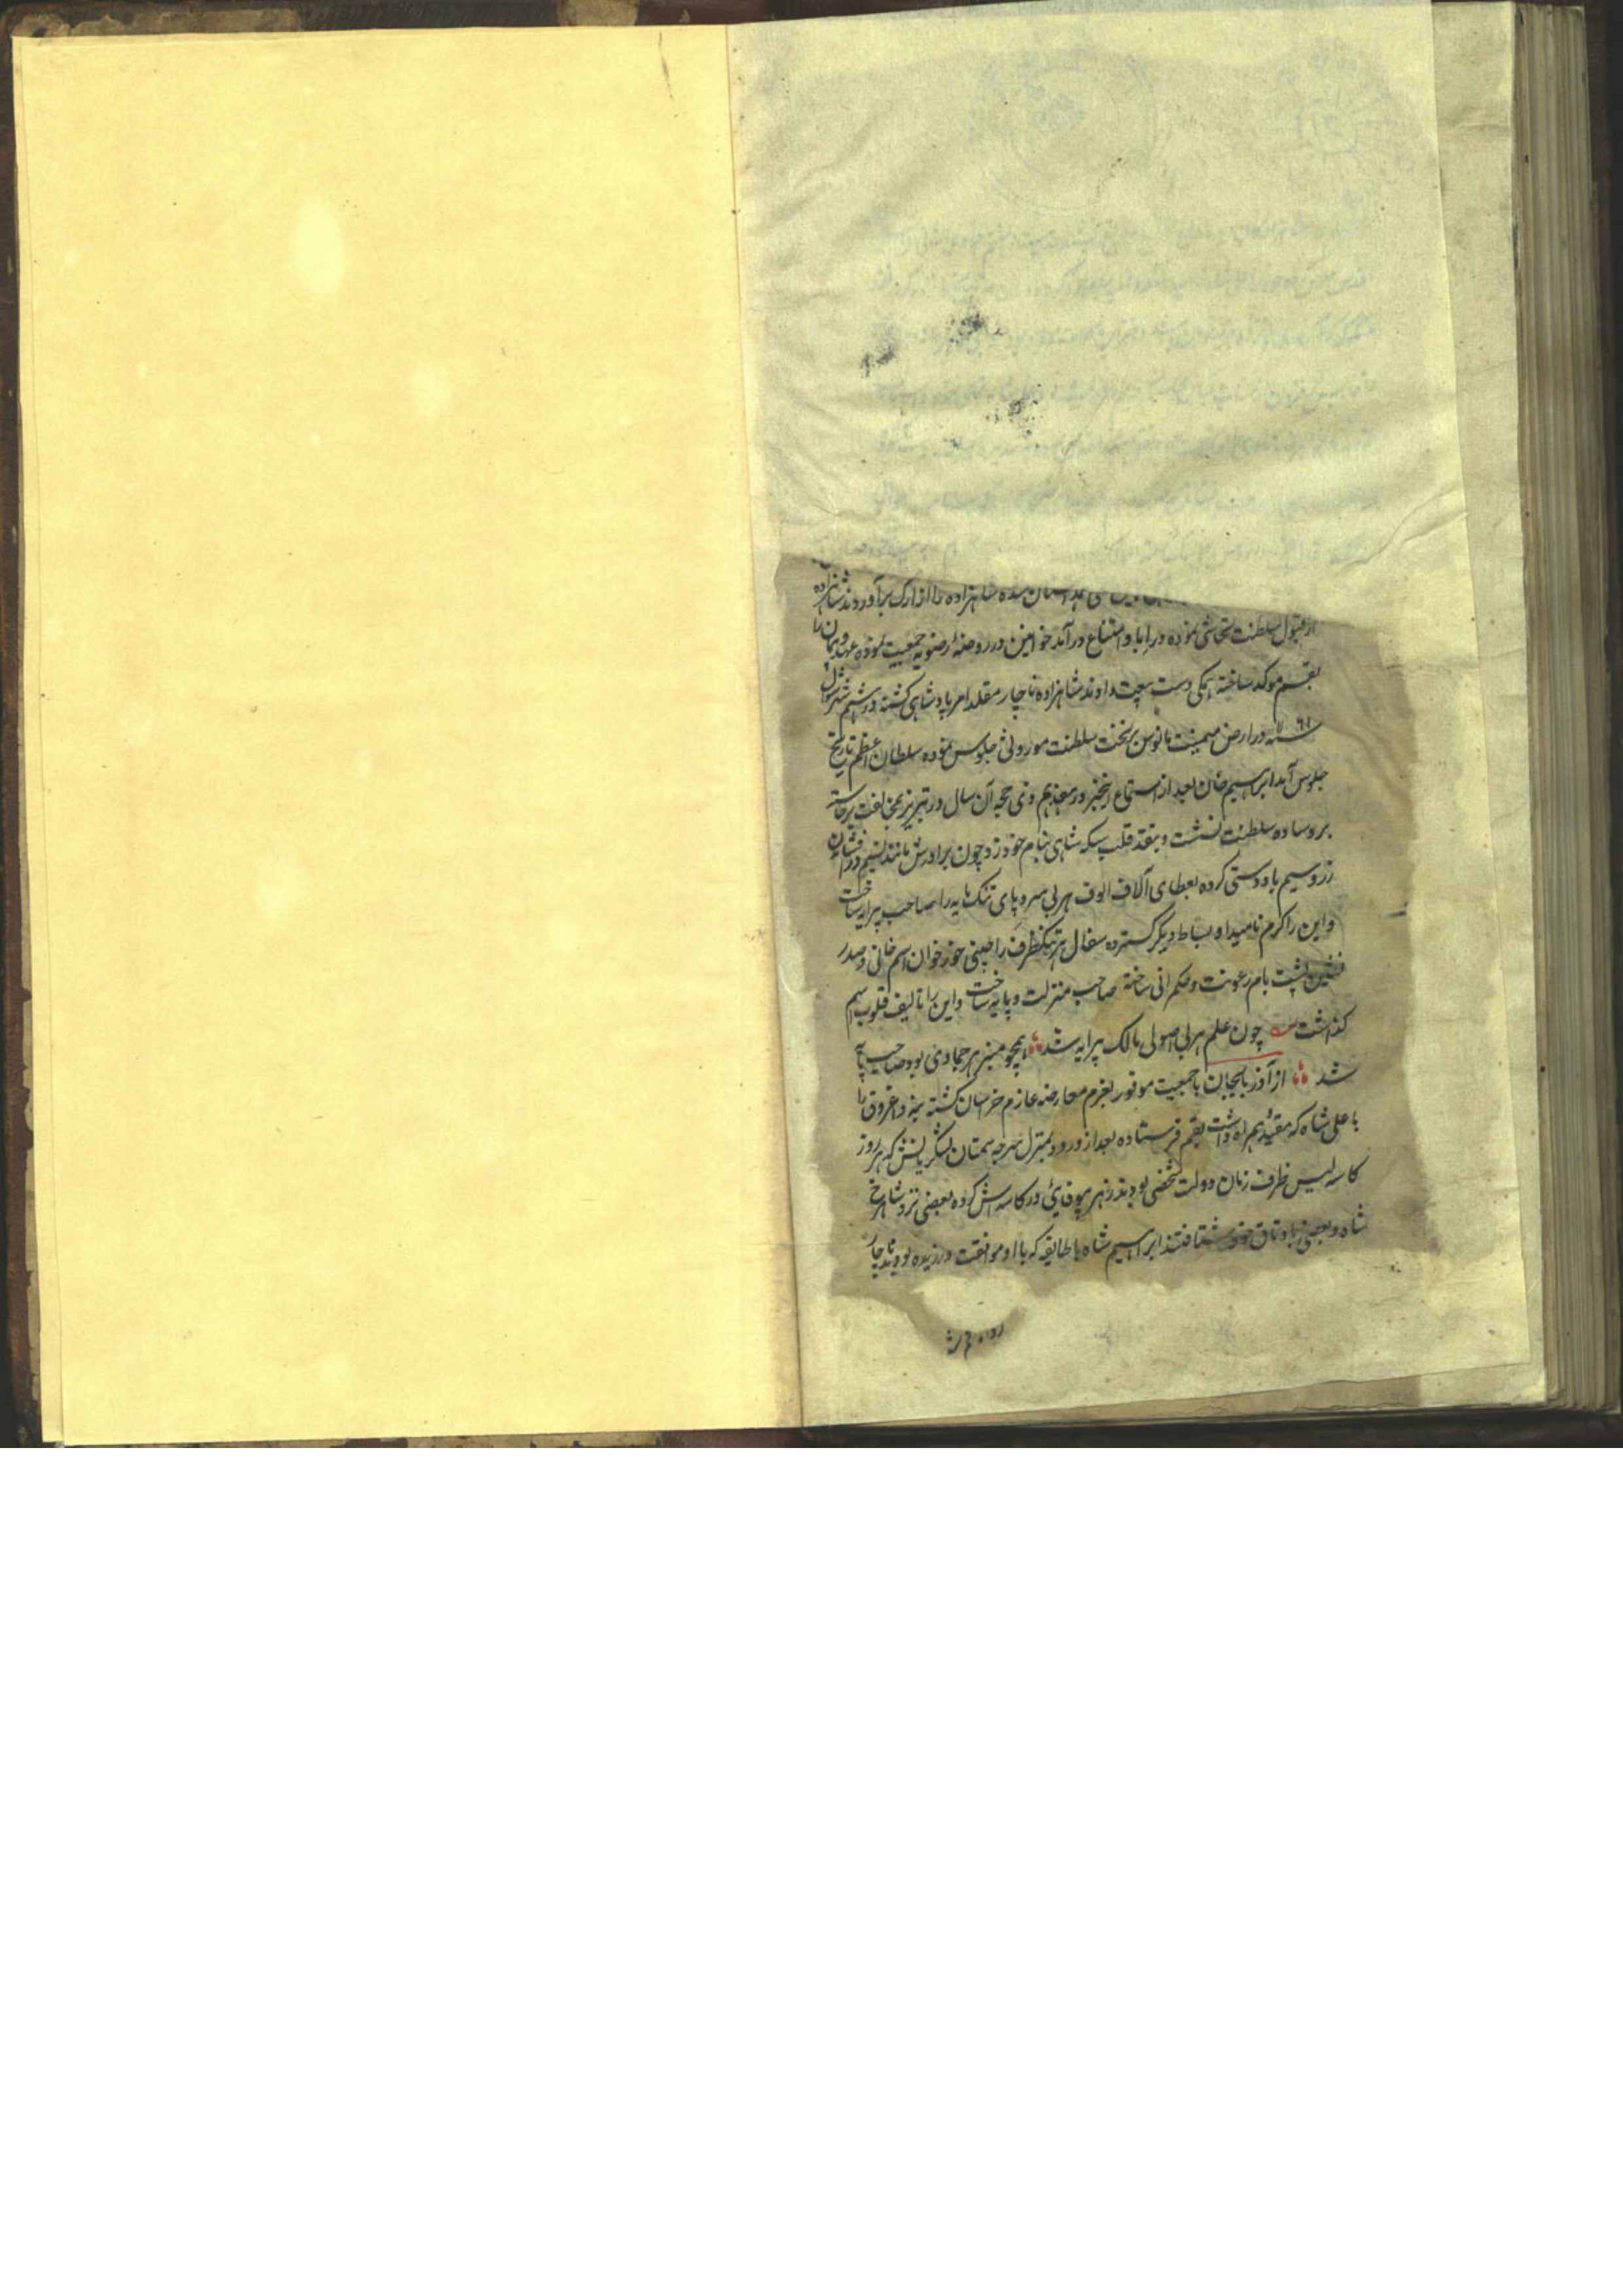 همداستان شده شاهزاده را از ارک برآوردند شاهزاده
از قبول سلطنت تحاشی نموده در ابا و امتناع درآمد خوانین در روضهٔ رضویه جمعیت نموده عهد و پیمان را
بقسم موکد ساخته همکی دست بیعت دادند شاهزاده ناچار مقلد امر پادشاهی کشته در هشتم شهر شوال
سنه ۱۱۶۱ در ارض میمنت مانوس بر تخت سلطنت موروثی جلوس نموده سلطان اعظم تاریخ
جلوس آمد ابراهیم خان بعد از استماع اینخبر در هفدهم ذی حجه آن سال در تبریز بمخالفت برخاسته
بر وساده سلطنت نشست و بنقد قلب سکه شاهی بنام خود زد چون برادرش مانند نسیم در افشان
زر و سیم باددستی کرده بعطای آلاف الوف هر بی سر و پای تنک مایه را صاحب پیرایه ساخت
و این را کرم نامید او بساط دیکر کسترده سفال هر تنکظرف را چینی خوان اسم خانی و صدر
نشین پشت بام رعونت و حکمرانی ساخته صاحب منزلت و پایه ساخت و این را تالیف قلوب اسم
کذاشت چون علم هر بی اصولی مالک پیرایه شد همچو منبر هر جمادی بود صاحب پایه
شد از آذربایجان با جمعیت موفور بعزم معارضه عازم خراسان کشته بنه و اغروق را
با علی شاه که مقید همراه داشت بقم فرستاده بعد از ورود بمنزل سرخه سمنان لشکریانش که هر روز
کاسه لیس ظرف زمان دولت شخصی بودند زهر بیوفایی در کاسه اش کرده بعضی نزد شاهرخ
شاه و بعضی باوتاق خود شتافتند ابراهیم شاه با طایفه که با او موافقت ورزیده بودند ناچار
روانه قم شد